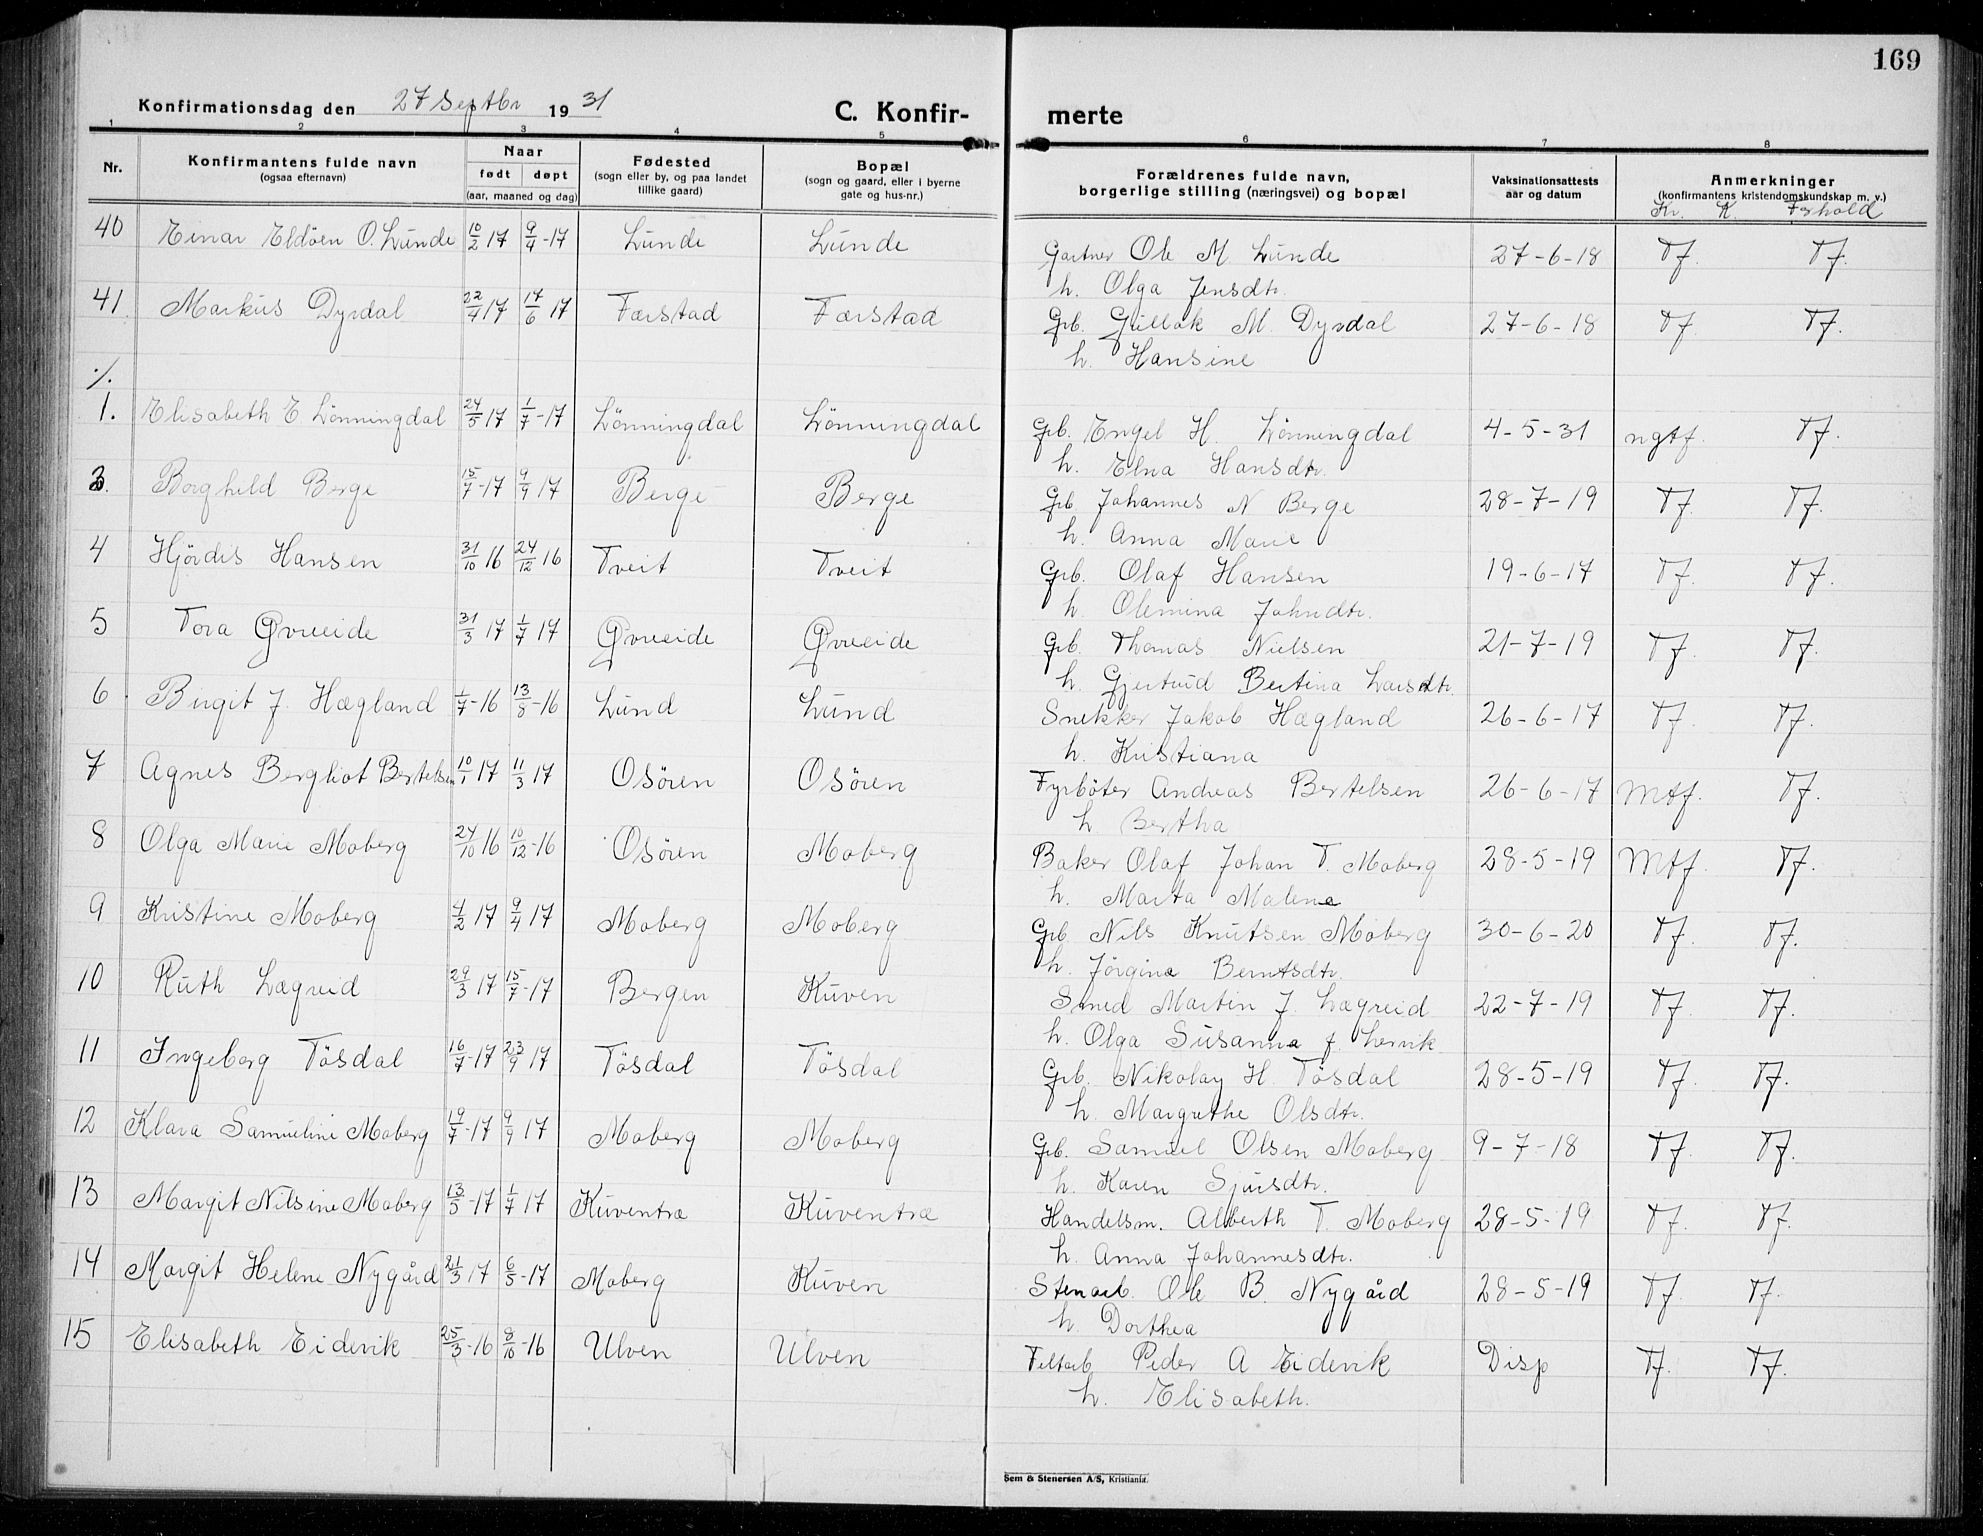 169
Konfirmationsdag den 27 Septbr 1931
C. Konfir- merte
1 2 3 4 5 6 7 8
Nr. Konfirmantens fulde navn (ogsaa efternavn) Naar født døpt (aar, maaned og dag) Fødested (sogn eller by, og paa landet tillike gaard) Bopæl (sogn og gaard, eller i byerne gate og hus-nr.) Forældrenes fulde navn, borgerlige stilling (næringsvei) og bopæl Vaksinationsattests aar og datum Anmerkninger (konfirmantens kristendomskundskap m. v.)
Kr. K. Forhold
40 Einar Eldöen O. Lunde 10/2 17 9/4-17 Lunde Lunde Gartner Ole M Lunde 27-6-18 Tf. Tf.
h. Olga Jensdtr.
41 Markus Dyrdal 22/4 17 17/6 17 Færstad Færstad Grb. Gullak M. Dyrdal 27-6-18 Tf. Tf.
h. Hansine
./.
1. Elisabeth E Lönningdal 24/5 17 1/7-17 Lönningdal Lönningdal Grb. Engel H. Lönningdal 4-5-31 ngtf. Tf.
h. Elna Hansdtr.
3. Borghild Berge 15/7-17 9/9 17 Berge Berge Grb. Johannes N Berge 28-7-19 Tf. Tf.
h. Anna Marie
4 Hjördis Hansen 31/10 16 24/12 16 Tveit Tveit Grb. Olaf Hansen 19-6-17 Tf. Tf.
h. Olemina Johndtr.
5 Tora Øvreeide 31/3 17 1/7 17 Øvreeide Øvreeide Grb. Thomas Nielsen 21-7-19 Tf. Tf.
h. Gjertrud Bertina Larsdtr.
6 Birgit J. Hægland 1/7-16 13/8-16 Lund Lund Snekker Jakob Hægland 26-6-17 Tf. Tf.
h. Kristiana
7 Agnes Bergliot Bertelsen 10/1 17 11/3 17 Osören Osören Fyrböter Andreas Bertelsen 26-6-17 Mtf. Tf.
h Bertha
8 Olga Marie Moberg 24/10 16 10/12-16 Osören Moberg Baker Olaf Johan T. Moberg 28-5-19 Mtf. Tf.
h. Marta Malene
9 Kristine Moberg 4/2 17 9/4 17 Moberg Moberg Grb Nils Knutsen Moberg 30-6-20 Tf. Tf.
h. Jörgine Berntsdtr.
10 Ruth Lægreid 29/3 17 15/7-17 Bergen Kuven Smed Martin J. Lægreid 22-7-19 Tf. Tf.
h. Olga Susanna f. Lervik
11 Ingeborg Tösdal 16/7-17 23/9 17 Tösdal Tösdal Grb. Nikolay H. Tösdal 28-5-19 Tf. Tf.
h. Margrethe Olsdtr.
12 Klara Samueline Moberg 19/7-17 9/9 17 Moberg Moberg Grb. Samuel Olsen Moberg 9-7-18 Tf. Tf.
h. Karen Sjursdtr.
13 Margit Nilsine Moberg 13/5-17 1/7 17 Kuventræ Kuventræ Handelsm. Alberth T. Moberg 28-5-19 Tf. Tf.
h. Anna Johannesdtr.
14 Margit Helene Nygård 21/3 17 6/5-17 Moberg Kuven Stenarb. Ole B. Nygård 28-5-19 Tf. Tf.
h. Dorthea
15 Elisabeth Eidevik 25/3-16 8/10-16 Ulven Ulven Feltarb Peder A Eidevik Disp Tf. Tf.
h. Elisabeth.
Sem & Stenersen A/S, Kristiania.